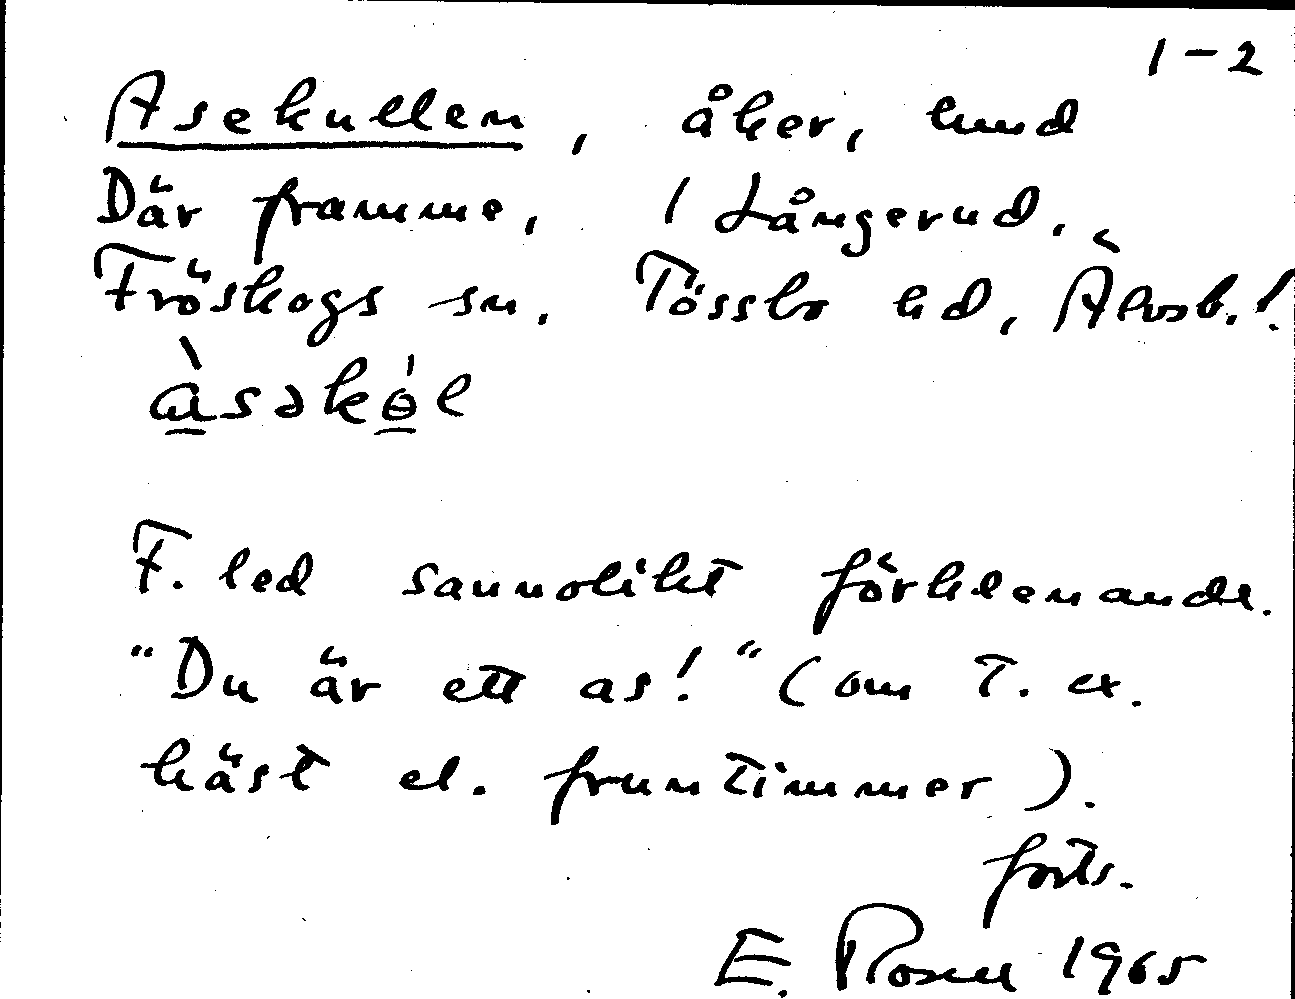 1-2
Asekullen, åker, hund
Där framme, 1 Långerud.
Fröskogs sn. Tössbo hd, Älvsb. l.
àsəkɵ́l
F. led sannolikt förklenande.
"Du är ett as!" (om t. ex.
häst el. fruntimmer).
forts.
E. Rosell 1965